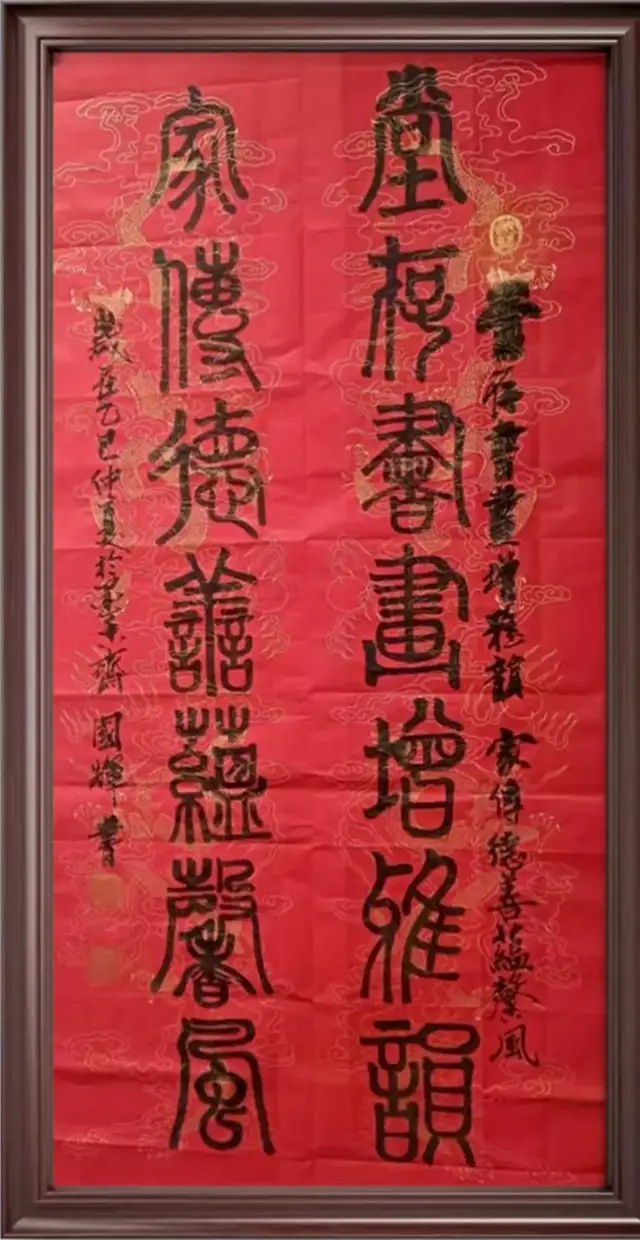 堂存書畫增雅韻 家傳德善蘊馨風
堂存書畫增雅韻
家傳德善蘊馨風
歲在乙巳仲夏於齋 國輝書